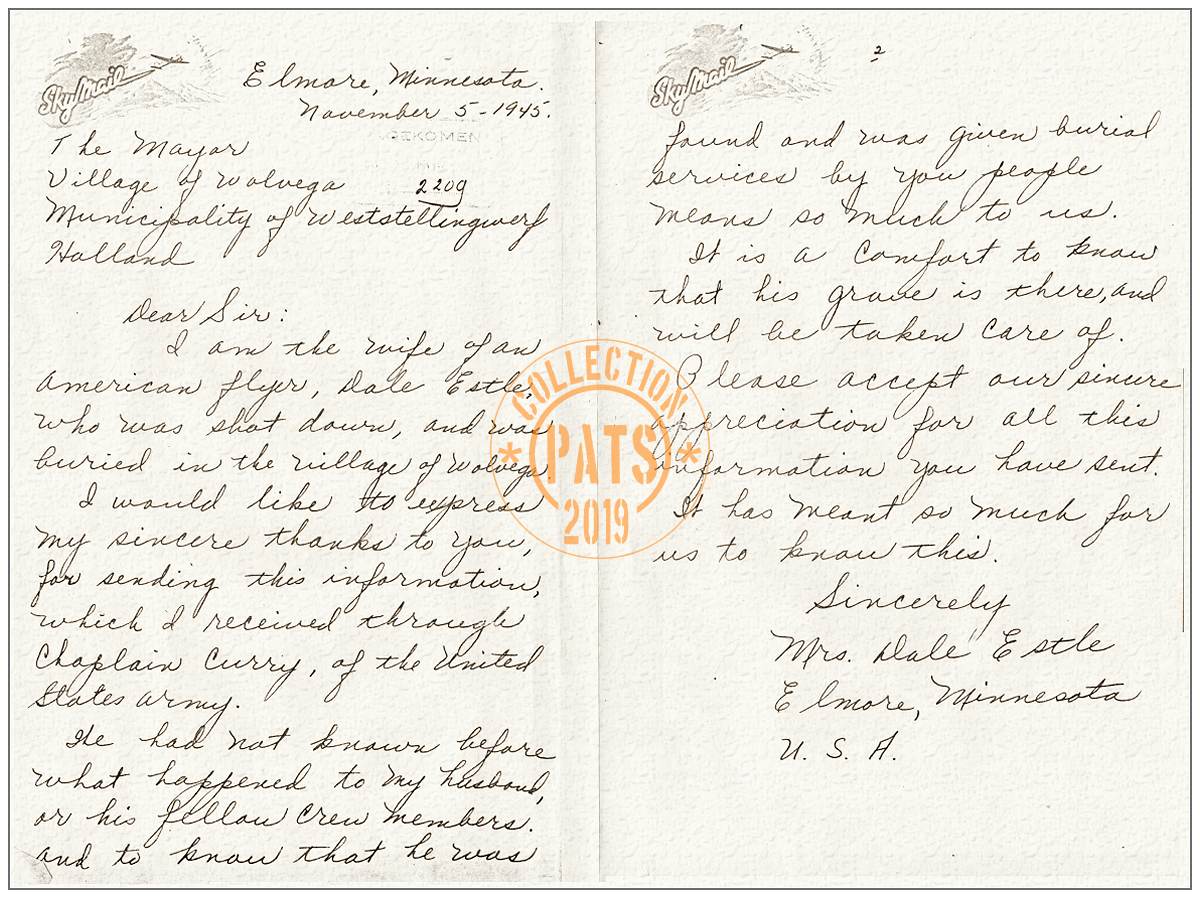 Sky Mail
Elmore, Minnesota.
November 5-1945.
The Mayor
Village of Wolvega
2209
Municipality of Weststellingwerf
Holland
Dear Sir:
I am the wife of an
American flyer, Dale Estle,
who was shot down, and was
buried in the village of Wolvega.
I would like to express
my sincere thanks to you,
for sending this information,
which I received through
Chaplain Curry, of the United
States Army.
We had not known before
what happened to my husband,
or his fellow crew members.
and to know that he was
Sky Mail
2
found and was given burial
services by you people
means so much to us.
It is a comfort to know
that his grave is there, and
will be taken care of.
Please accept our sincere
appreciation for all this
information you have sent.
It has meant so much for
us to know this.
Sincerely
Mrs. Dale Estle
Elmore, Minnesota
U. S. A.
COLLECTION
* PATS *
2019